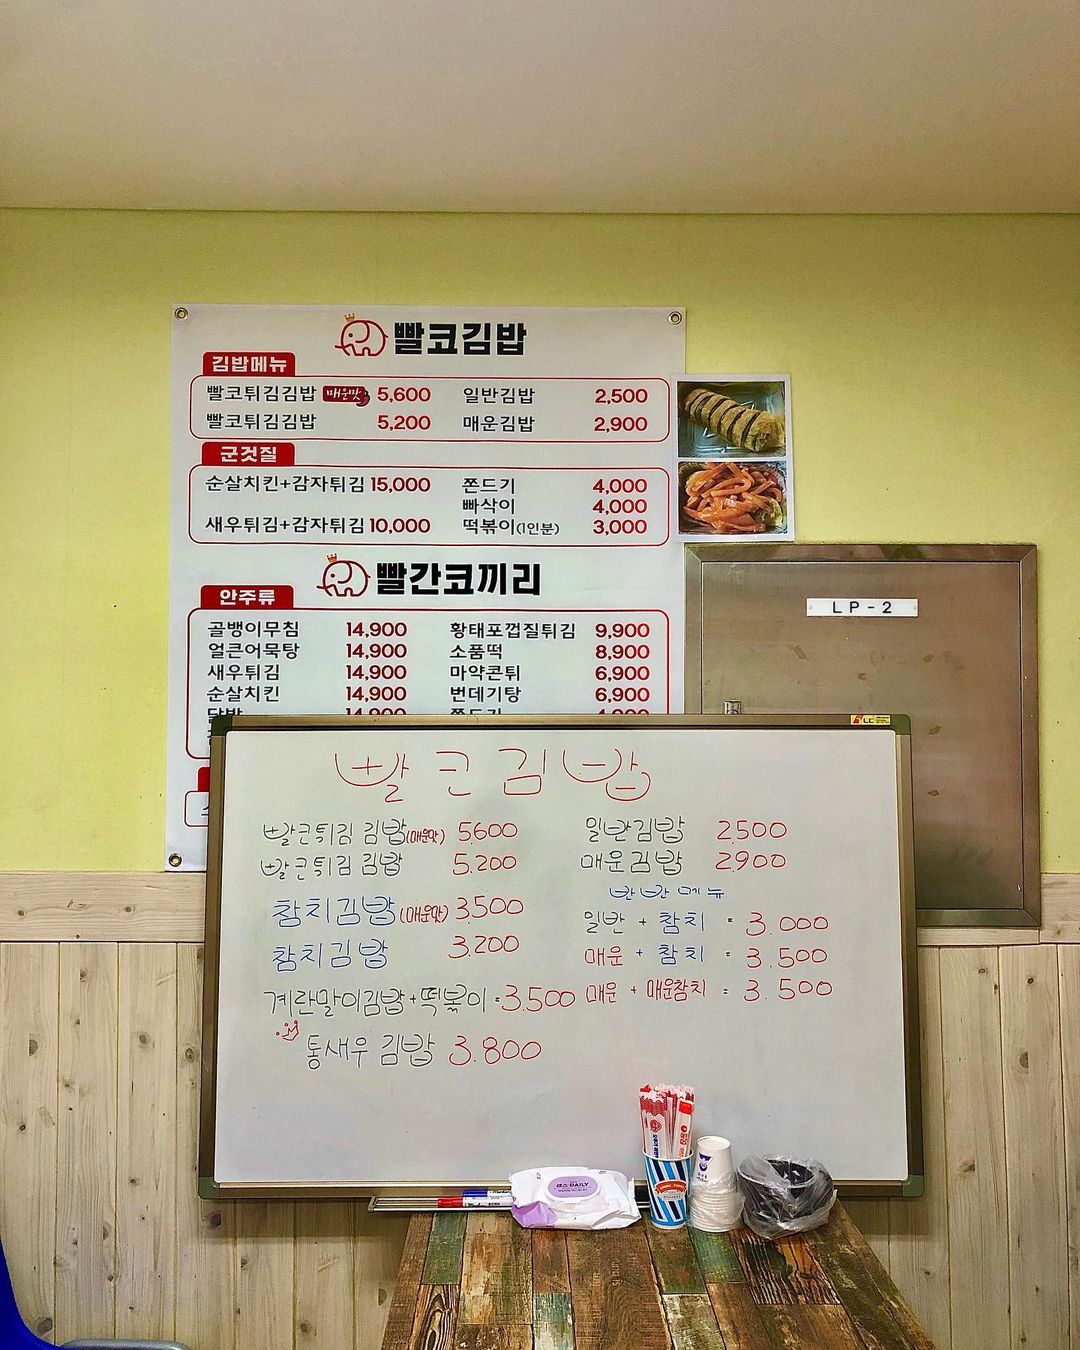 빨코김밥
김밥메뉴
빨코튀김김밥 매운맛 5,600 일반김밥 2,500
빨코튀김김밥 5,200 매운김밥 2,900
군것질
순살치킨+감자튀김 15,000 쫀드기 4,000
빠삭이 4,000
새우튀김+감자튀김 10,000 떡볶이(1인분) 3,000
빨간코끼리
안주류
골뱅이무침 14,900 황태포껍질튀김 9,900
얼큰어묵탕 14,900 소품떡 8,900
새우튀김 14,900 마약콘튀 6,900
순살치킨 14,900 번데기탕 6,900
닭발 14,900 쫀드기 4,000
LP-2
빨코김밥
빨코튀김 김밥(매운맛) 5,600 일반김밥 2,500
빨코튀김 김밥 5,200 매운김밥 2,900
반반메뉴
참치김밥(매운맛) 3,500 일반 + 참치 = 3.000
참치김밥 3.200 매운 + 참치 = 3.500
계란말이김밥+떡볶이=3.500 매운 + 매운참치 = 3.500
통새우 김밥 3.800
DAILY